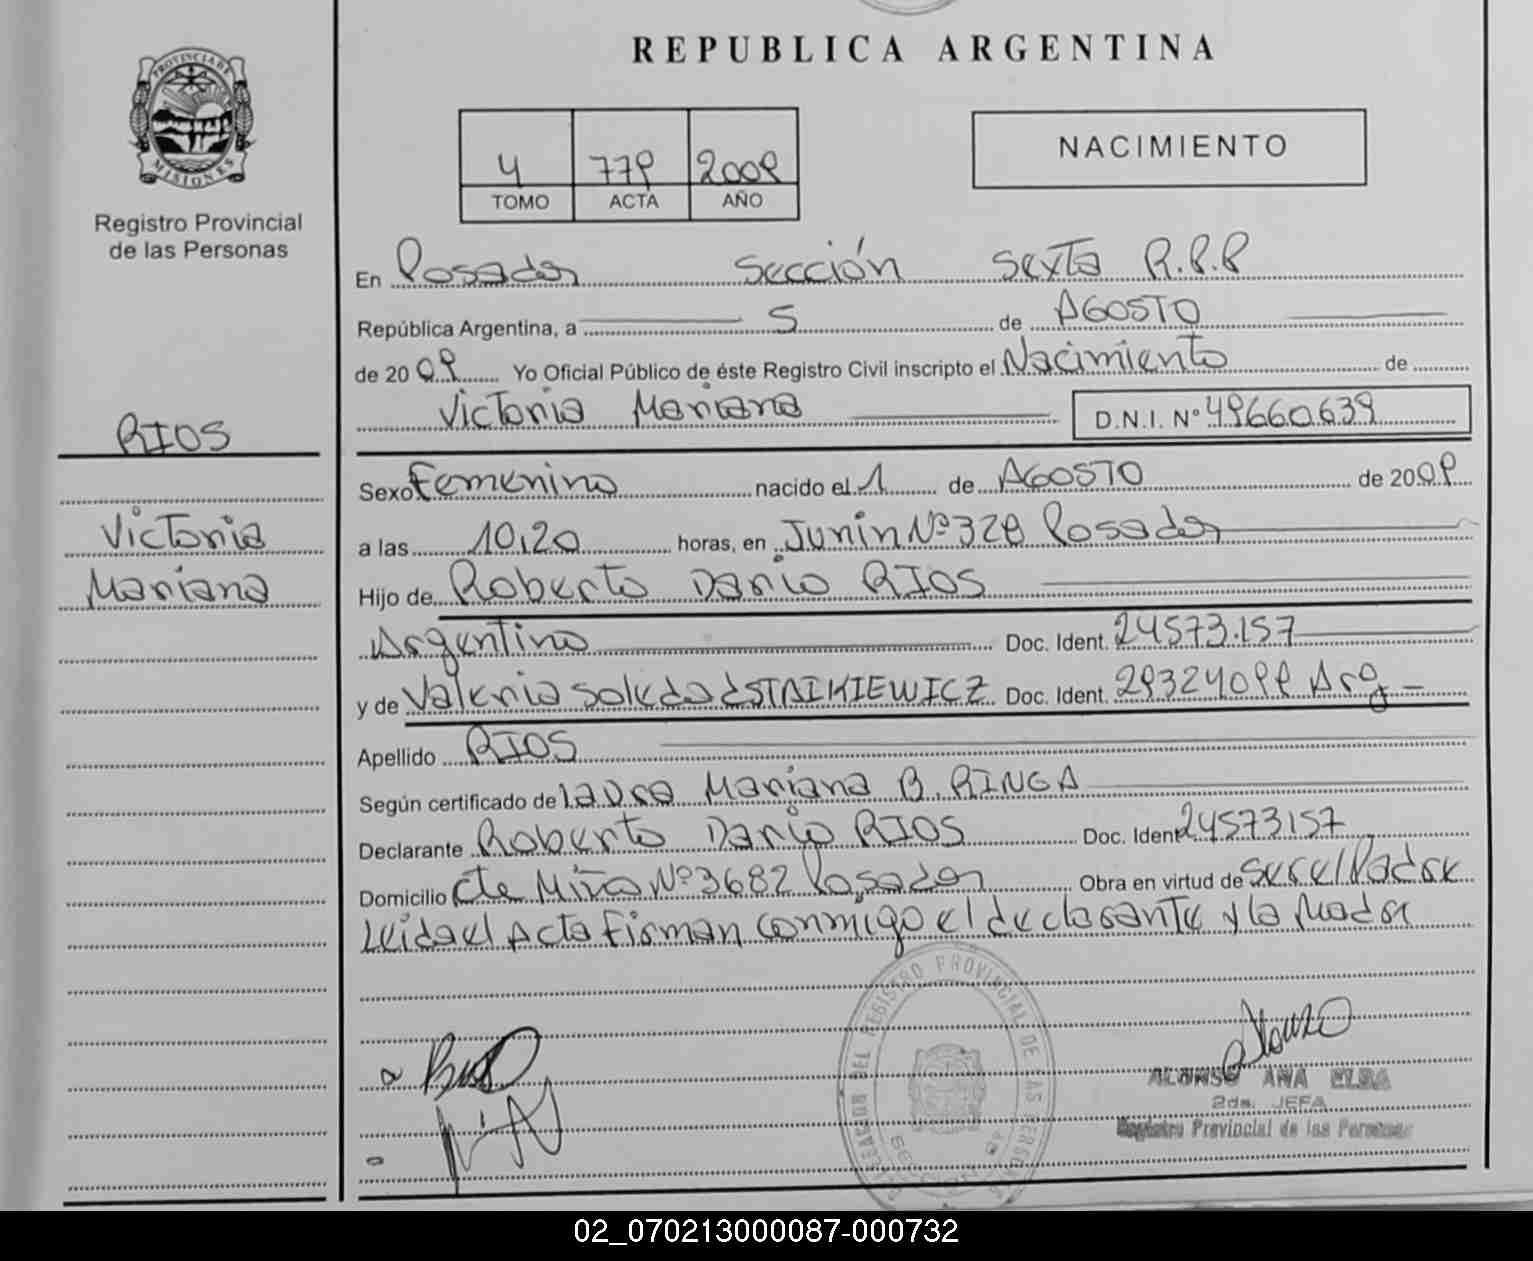 REPUBLICA ARGENTINA
PROVINCIA DE
MISIONES
Registro Provincial
de las Personas
4 779 2009
TOMO ACTA AÑO
NACIMIENTO
En Posadas Sección Sexta R.P.P
República Argentina, a 5 de AGOSTO
de 2009 Yo Oficial Público de éste Registro Civil inscripto el Nacimiento de
Victoria Mariana D.N.I. Nº 49660.639
RIOS
Victoria
Mariana
Sexo Femenino nacido el 1 de AGOSTO de 2009
a las 10,20 horas, en Junin Nº 328 Posadas
Hijo de Roberto Dario RIOS
Argentino Doc. Ident. 24573.157
y de Valeria Soledad STAIKIEWICZ Doc. Ident. 29324099 Arg
Apellido RIOS
Según certificado de Laura Mariana B. RINGA
Declarante Roberto Dario RIOS Doc. Ident 24573157
Domicilio Cte Miño Nº 3682 Posadas Obra en virtud de ser el Padre
Leida el Acta Firman conmigo el declarante y la Madre
REGISTRO PROVINCIAL DE LAS PERSONAS
ALONSO ANA ELBA
2da. JEFA
Registro Provincial de las Personas
02_070213000087-000732